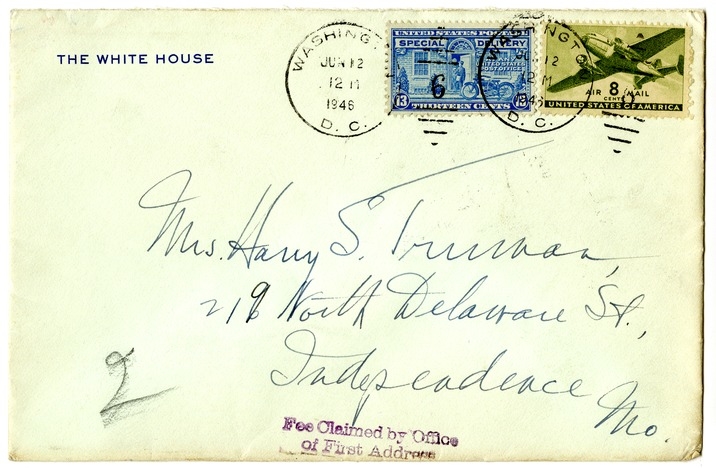 THE WHITE HOUSE
WASHINGT
JUN 12
12 M
1946
D. C.
UNITED STATES POSTAGE
SPECIAL DELIVERY
UNITED STATES
POST OFFICE
13 THIRTEEN CENTS 13
6
WASHINGTO
12
12 M
1946
D. C.
AIR 8 MAIL
CENTS
UNITED STATES OF AMERICA
Mrs. Harry S. Truman,
219 North Delaware St.,
Independence
Mo.
2
Fee Claimed by Office
of First Address